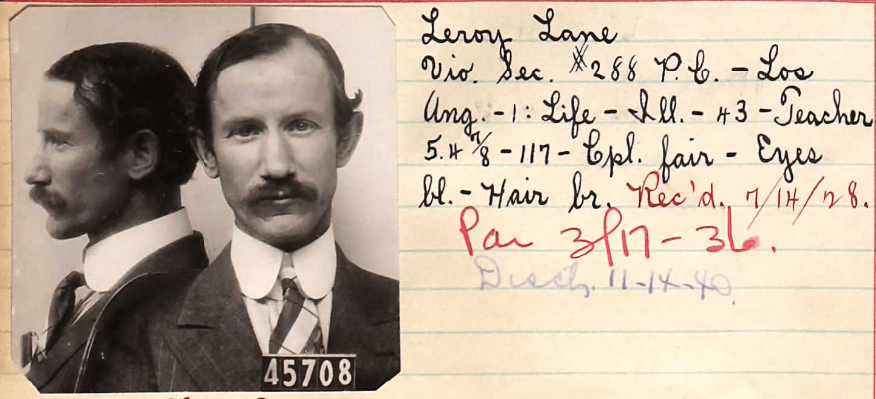 Leroy Lane
Vio. Sec. #288 P.C. - Los
Ang. - 1: Life - Ill. - 43 - Teacher
5.4 7/8 - 117 - Cpl. fair - Eyes
bl. - Hair br. Rec'd. 7/14/28.
Par 3/17-36.
Disch. 11-14-40.
45708